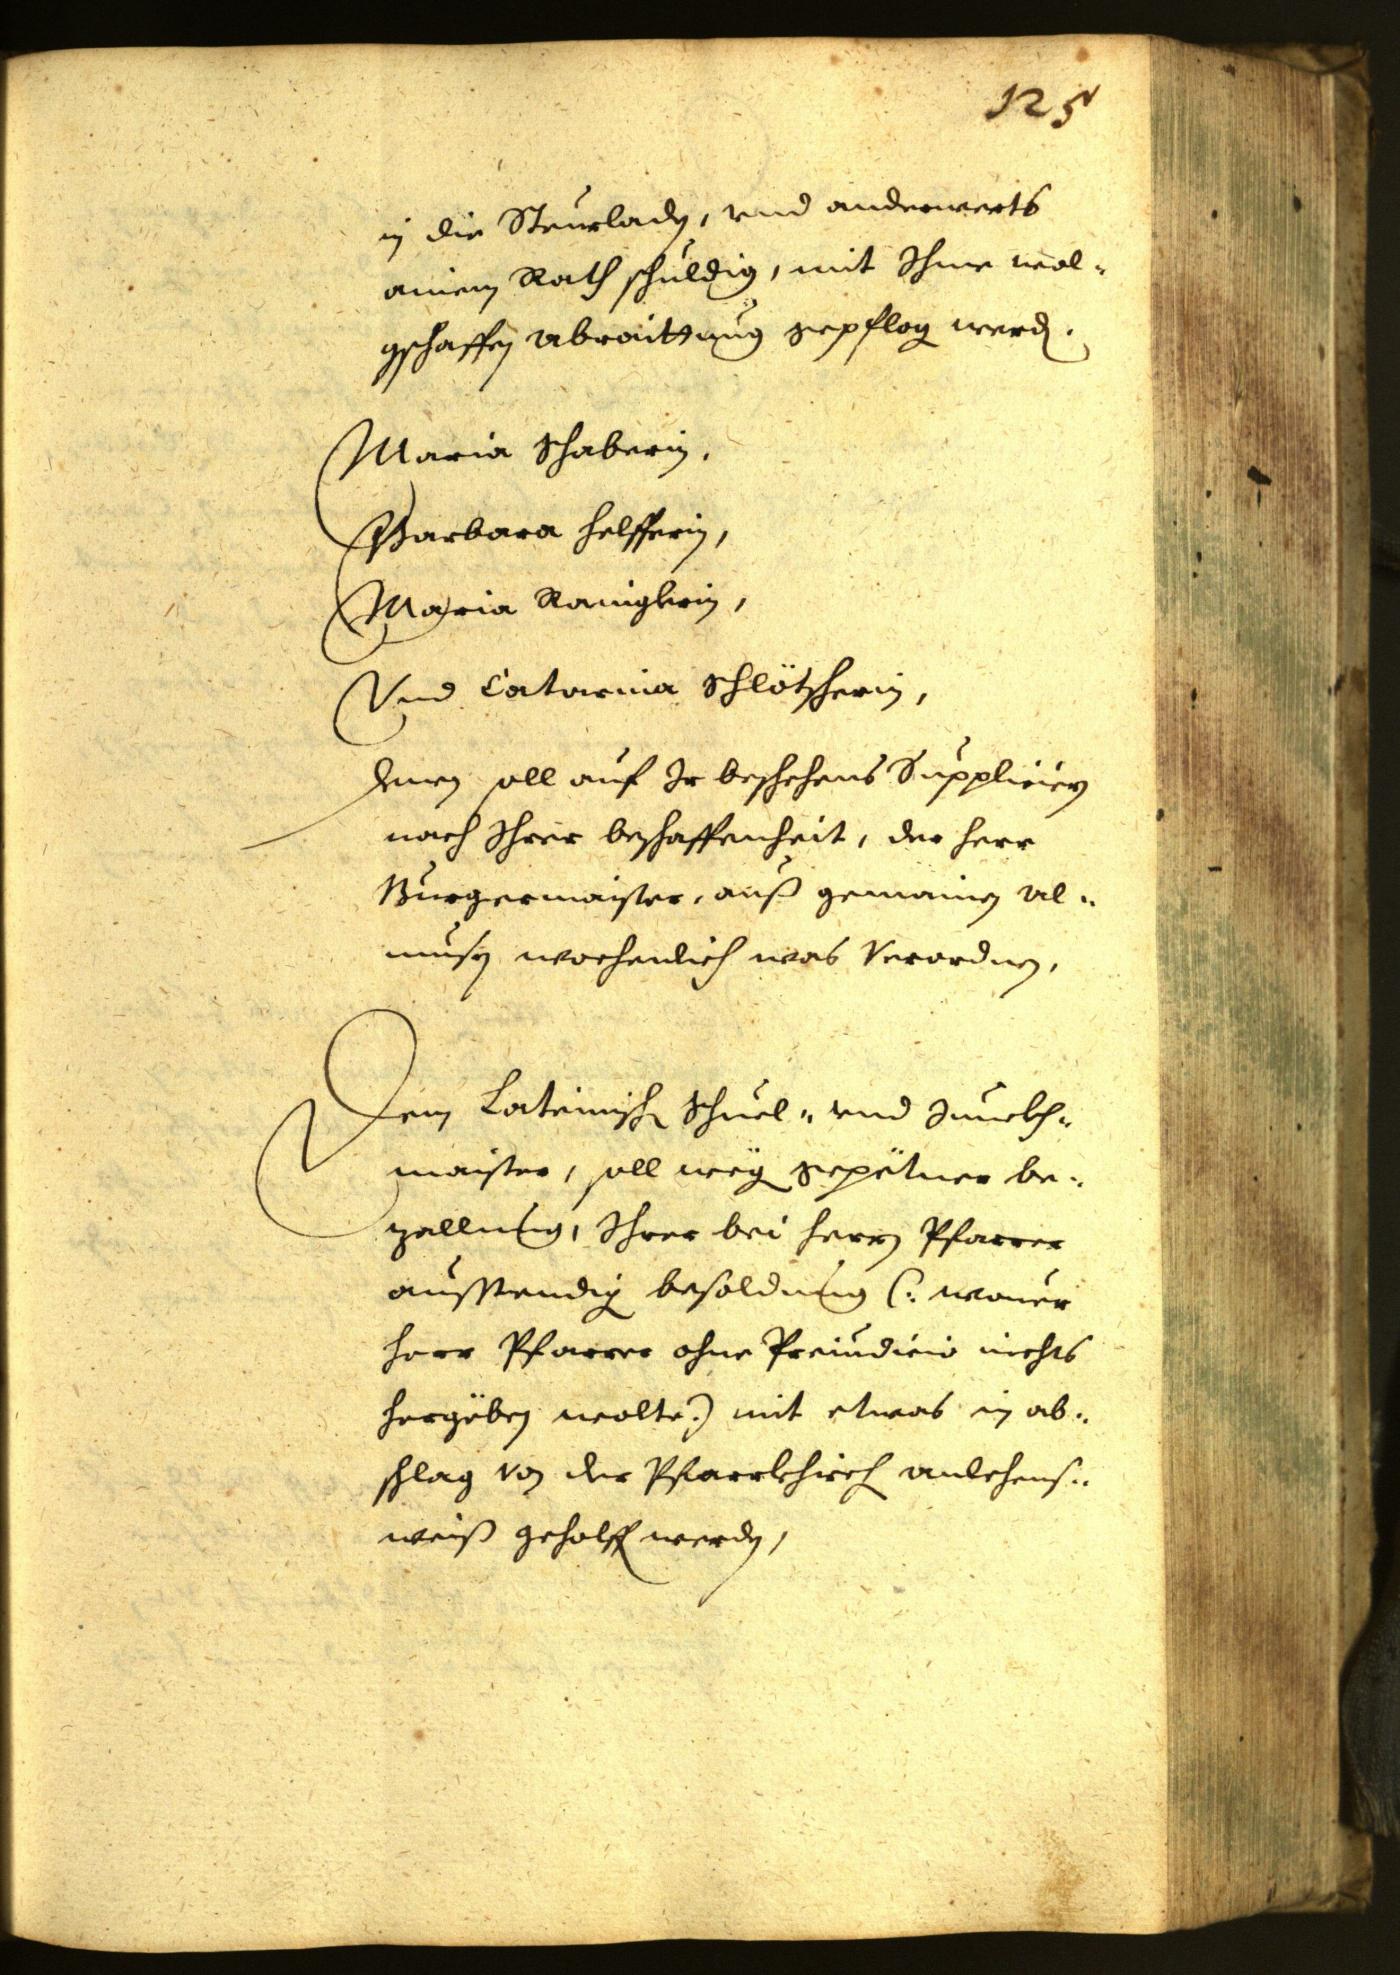 125
in die Steurladen, vnd anderwerts
ainem Rath schuldig, mit Ihme wol-
gschaffen abraittung gepflog werden.
Maria Schaberin,
Barbara Helfferin,
Maria Raniglerin,
Vnd Catarina Schlötscherin,
denen soll auf Ir beschehens Suppliciern
nach Ihrer beschaffenheit, der Herr
Burgermaister, auß gemainen Al-
musen wochenlich was Verordnen,
Dem Lateinischen Schuel- vnd
maister, soll wegen gepëtner be-
zallung, Ihrer bei Herrn Pfarrer
ausstendigen besoldung (: wouer
Herr Pfarrer ohne Preiudicio nichts
hergëben wolte:) mit etwas in ab-
schlag von der Pfarrkhirch anlehens-
weiß geholffen werden,